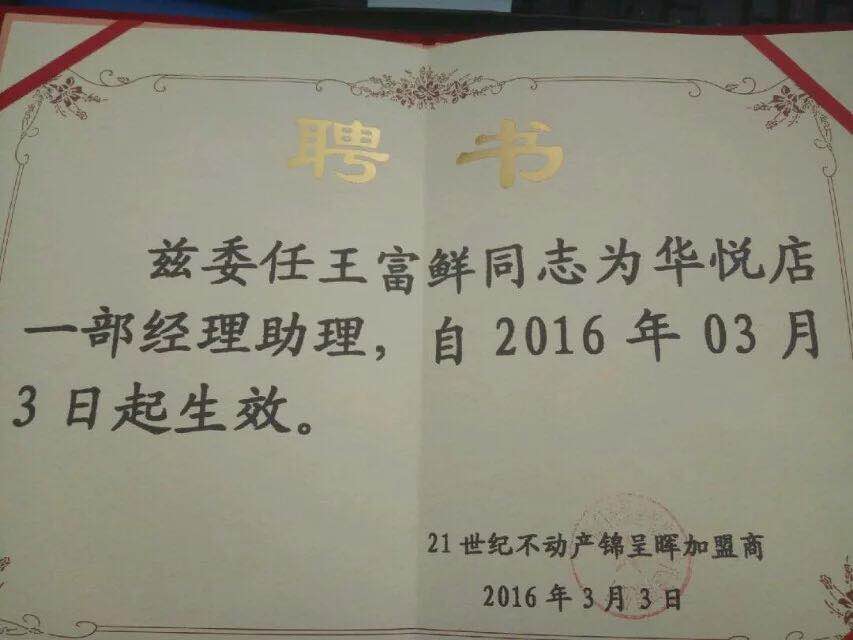 聘书
兹委任王富鲜同志为华悦店
一部经理助理，自2016年03月
3日起生效。
21世纪不动产锦呈晖加盟商
2016年3月3日